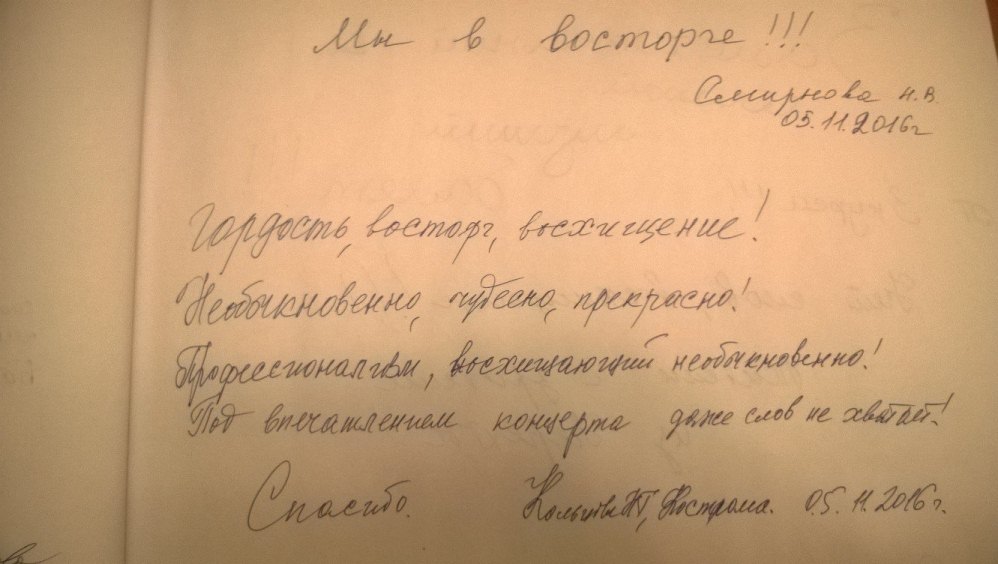 Мы в восторге!!!
Смирнова Н.В.
05.11.2016г
Гордость, восторг, восхищение!
Необыкновенно, чудесно, прекрасно!
Профессионализм, восхищающий необыкновенно!
Под впечатлением концерта даже слов не хватает!
Спасибо. Кострома. 05.11.2016г.